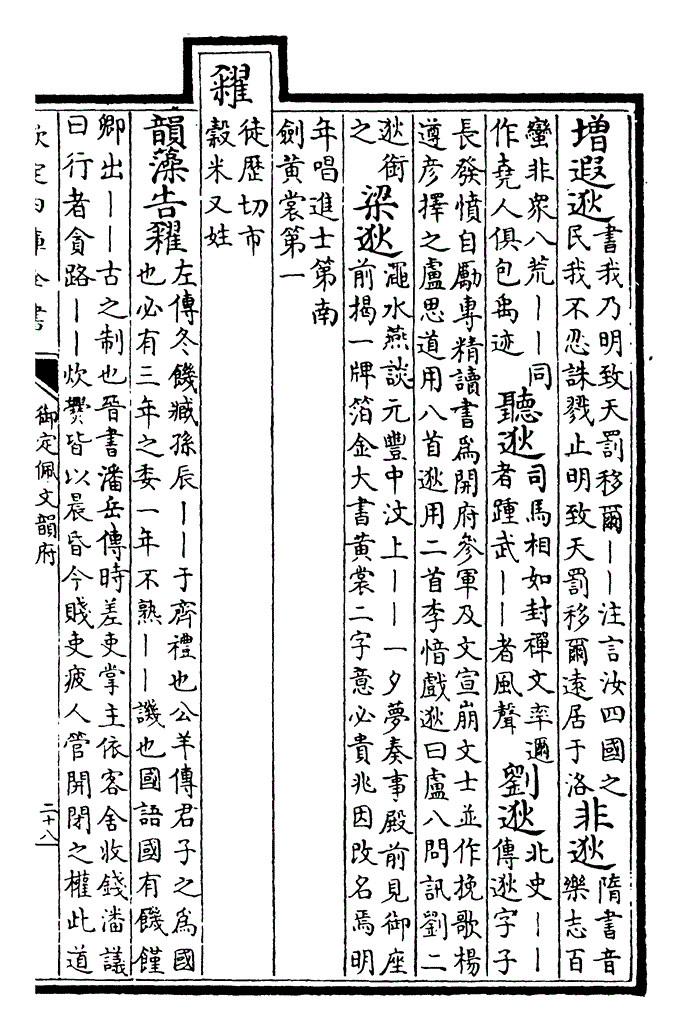 增遐逖
書我乃明致天罰移爾丨丨注言汝四國之
民我不忍誅戮止明致天罰移爾遠居于洛
非逖
隋書音
樂志百
蠻非衆八荒丨丨同
作堯人俱包禹迹
聽逖
司馬相如封禪文率邇
者踵武丨丨者風聲
劉逖
北史丨丨
傳逖字子
長發憤自勵專精讀書為開府參軍及文宣崩文士並作挽歌楊
遵彦擇之盧思道用八首逖用二首李愔戲逖曰盧八問訊劉二
逖銜
之
梁逖
澠水燕談元豐中汶上丨丨一夕夢奏事殿前見御座
前揭一牌箔金大書黄裳二字意必貴兆因改名焉明
年唱進士第南
劍黄裳第一
糴
徒歴切市
穀米又姓
韻藻告糴
左傳冬饑臧孫辰丨丨于齊禮也公羊傳君子之為國
也必有三年之委一年不熟丨丨譏也國語國有饑饉
卿出丨丨古之制也晉書潘岳傳時差吏掌主依客舍收錢潘議
曰行者貪路丨丨炊爨皆以晨昏今賤吏疲人管開閉之權此道
欽定四庫全書
御定佩文韻府
二十八